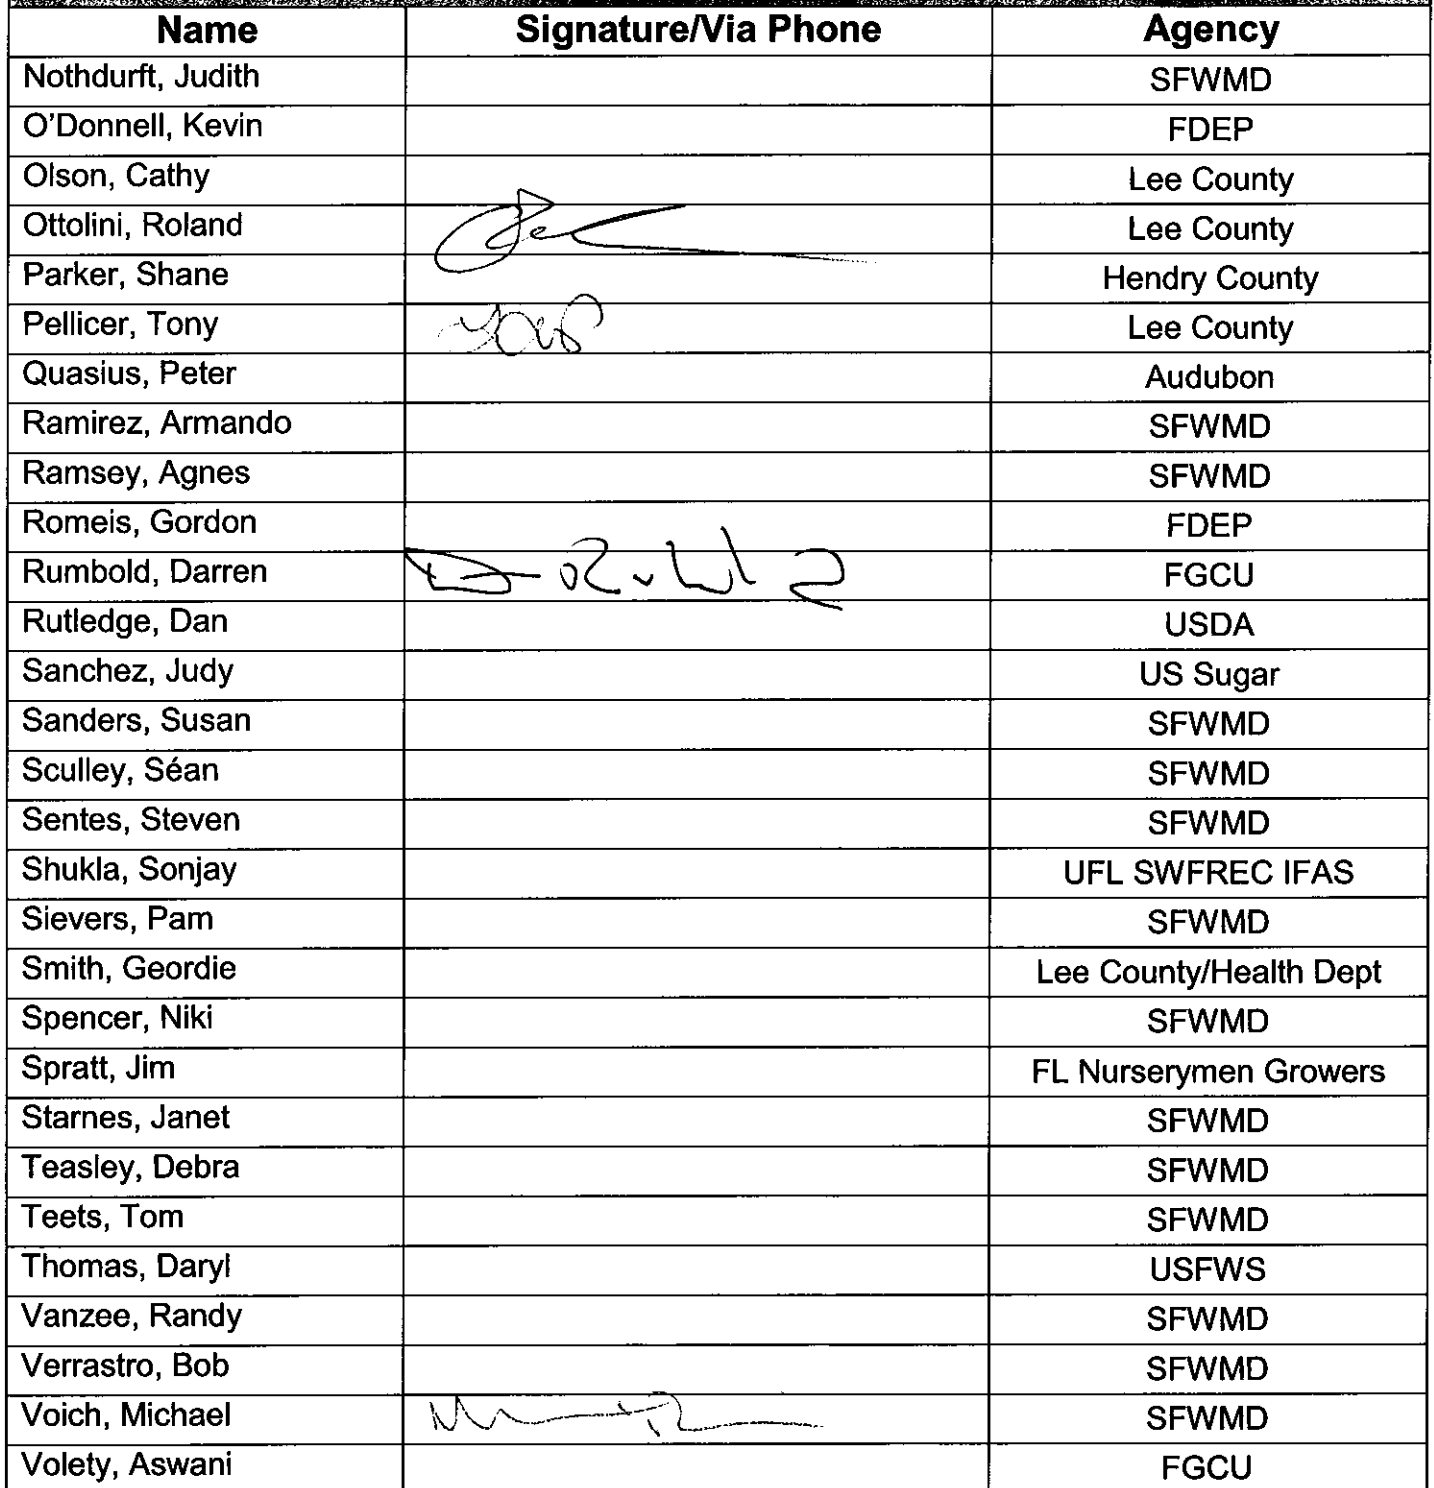 Name Signature/Via Phone Agency
Nothdurft, Judith SFWMD
O'Donnell, Kevin FDEP
Olson, Cathy Lee County
Ottolini, Roland Lee County
Parker, Shane Hendry County
Pellicer, Tony Lee County
Quasius, Peter Audubon
Ramirez, Armando SFWMD
Ramsey, Agnes SFWMD
Romeis, Gordon FDEP
Rumbold, Darren FGCU
Rutledge, Dan USDA
Sanchez, Judy US Sugar
Sanders, Susan SFWMD
Sculley, Séan SFWMD
Sentes, Steven SFWMD
Shukla, Sonjay UFL SWFREC IFAS
Sievers, Pam SFWMD
Smith, Geordie Lee County/Health Dept
Spencer, Niki SFWMD
Spratt, Jim FL Nurserymen Growers
Starnes, Janet SFWMD
Teasley, Debra SFWMD
Teets, Tom SFWMD
Thomas, Daryl USFWS
Vanzee, Randy SFWMD
Verrastro, Bob SFWMD
Voich, Michael SFWMD
Volety, Aswani FGCU